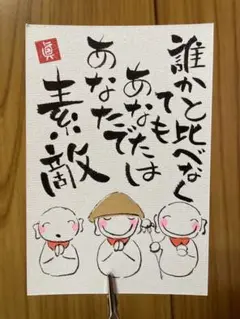 誰かと比べなく
ても
あなたは
あなたで
素敵
眞